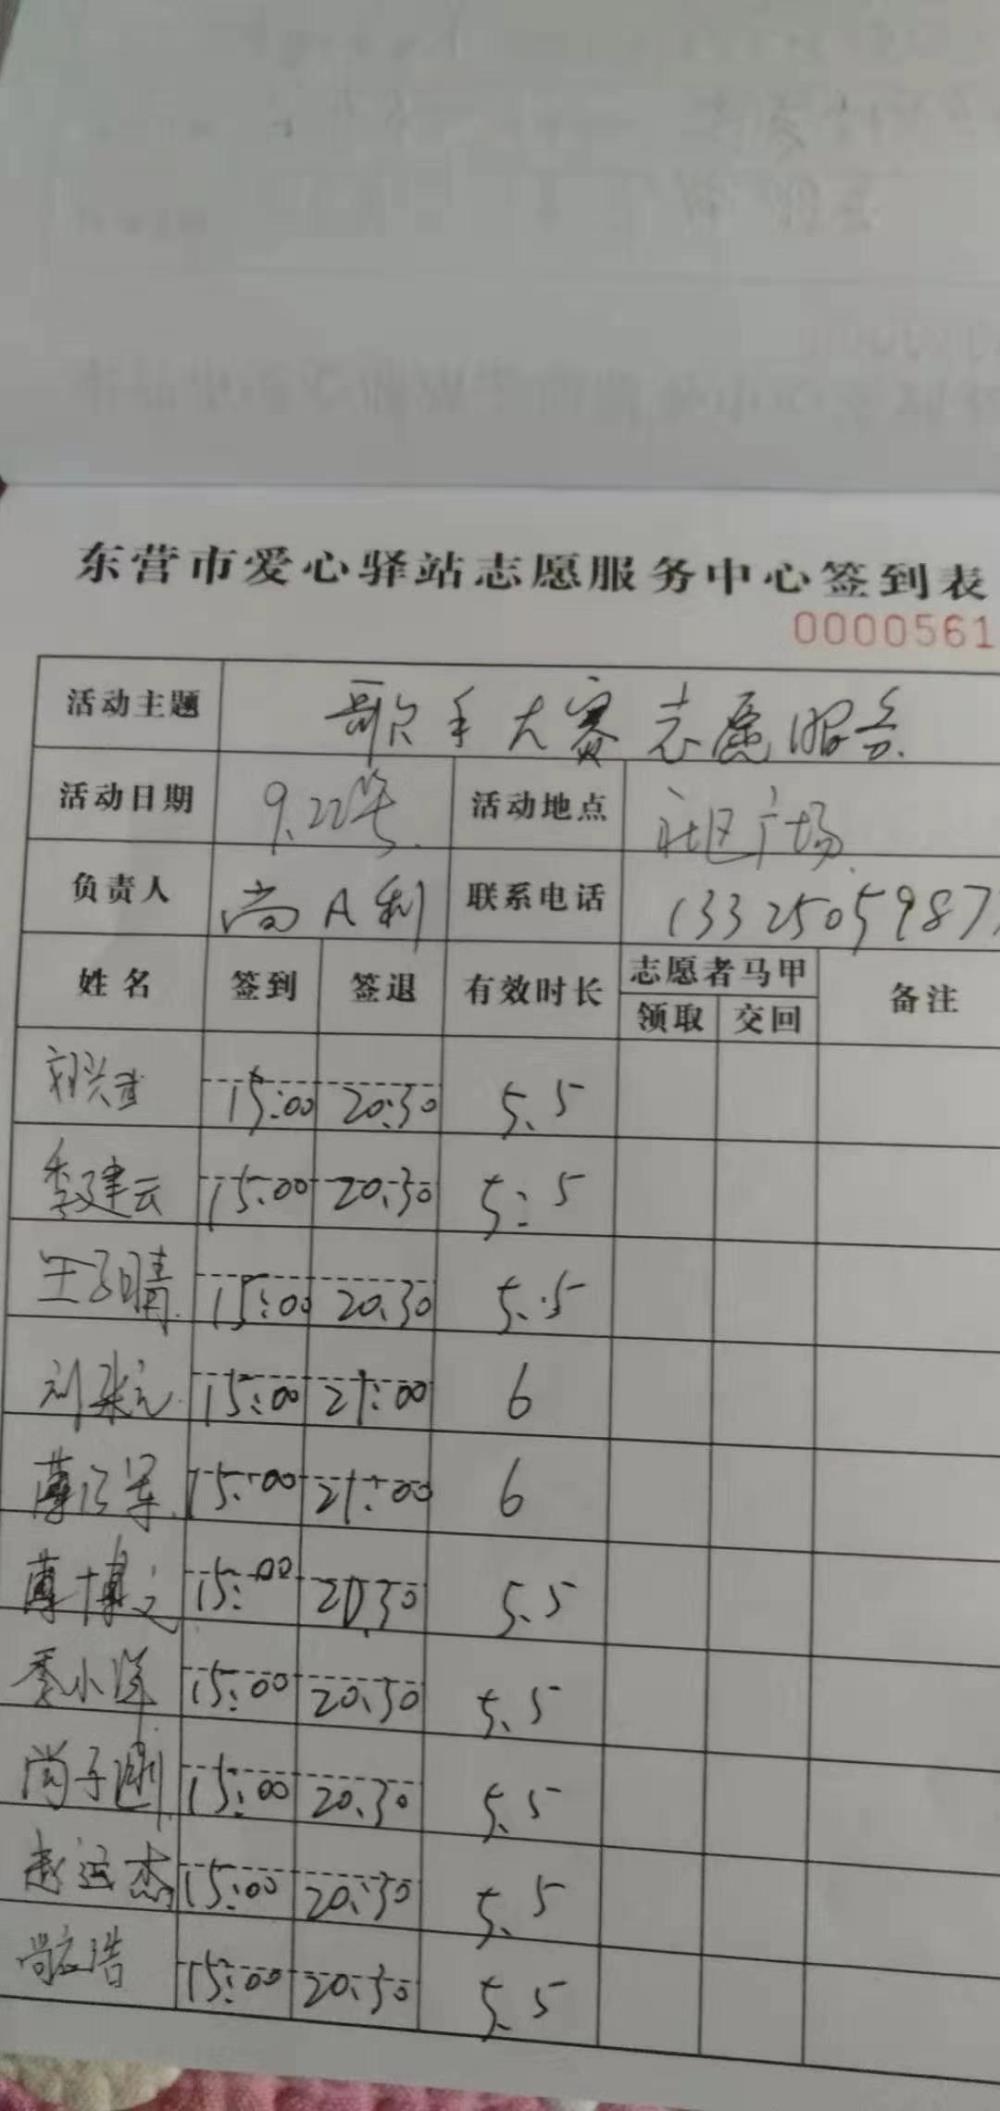 东营市爱心驿站志愿服务中心签到表
0000561
活动主题 歌手大赛志愿服务
活动日期 9.22号 活动地点 社区广场
负责人 尚A利 联系电话 1332505987
姓名 签到 签退 有效时长 志愿者马甲 备注
领取 交回
15:00 20:30 5.5
李建云 15:00 20:30 5.5
王子晴 15:00 20.30 5.5
15:00 21:00 6
15:00 21:00 6
薄博文 15:00 20.30 5.5
李小洋 15:00 20:30 5.5
尚子渊 15:00 20.30 5.5
赵运杰 15:00 20:30 5.5
15:00 20:30 5.5